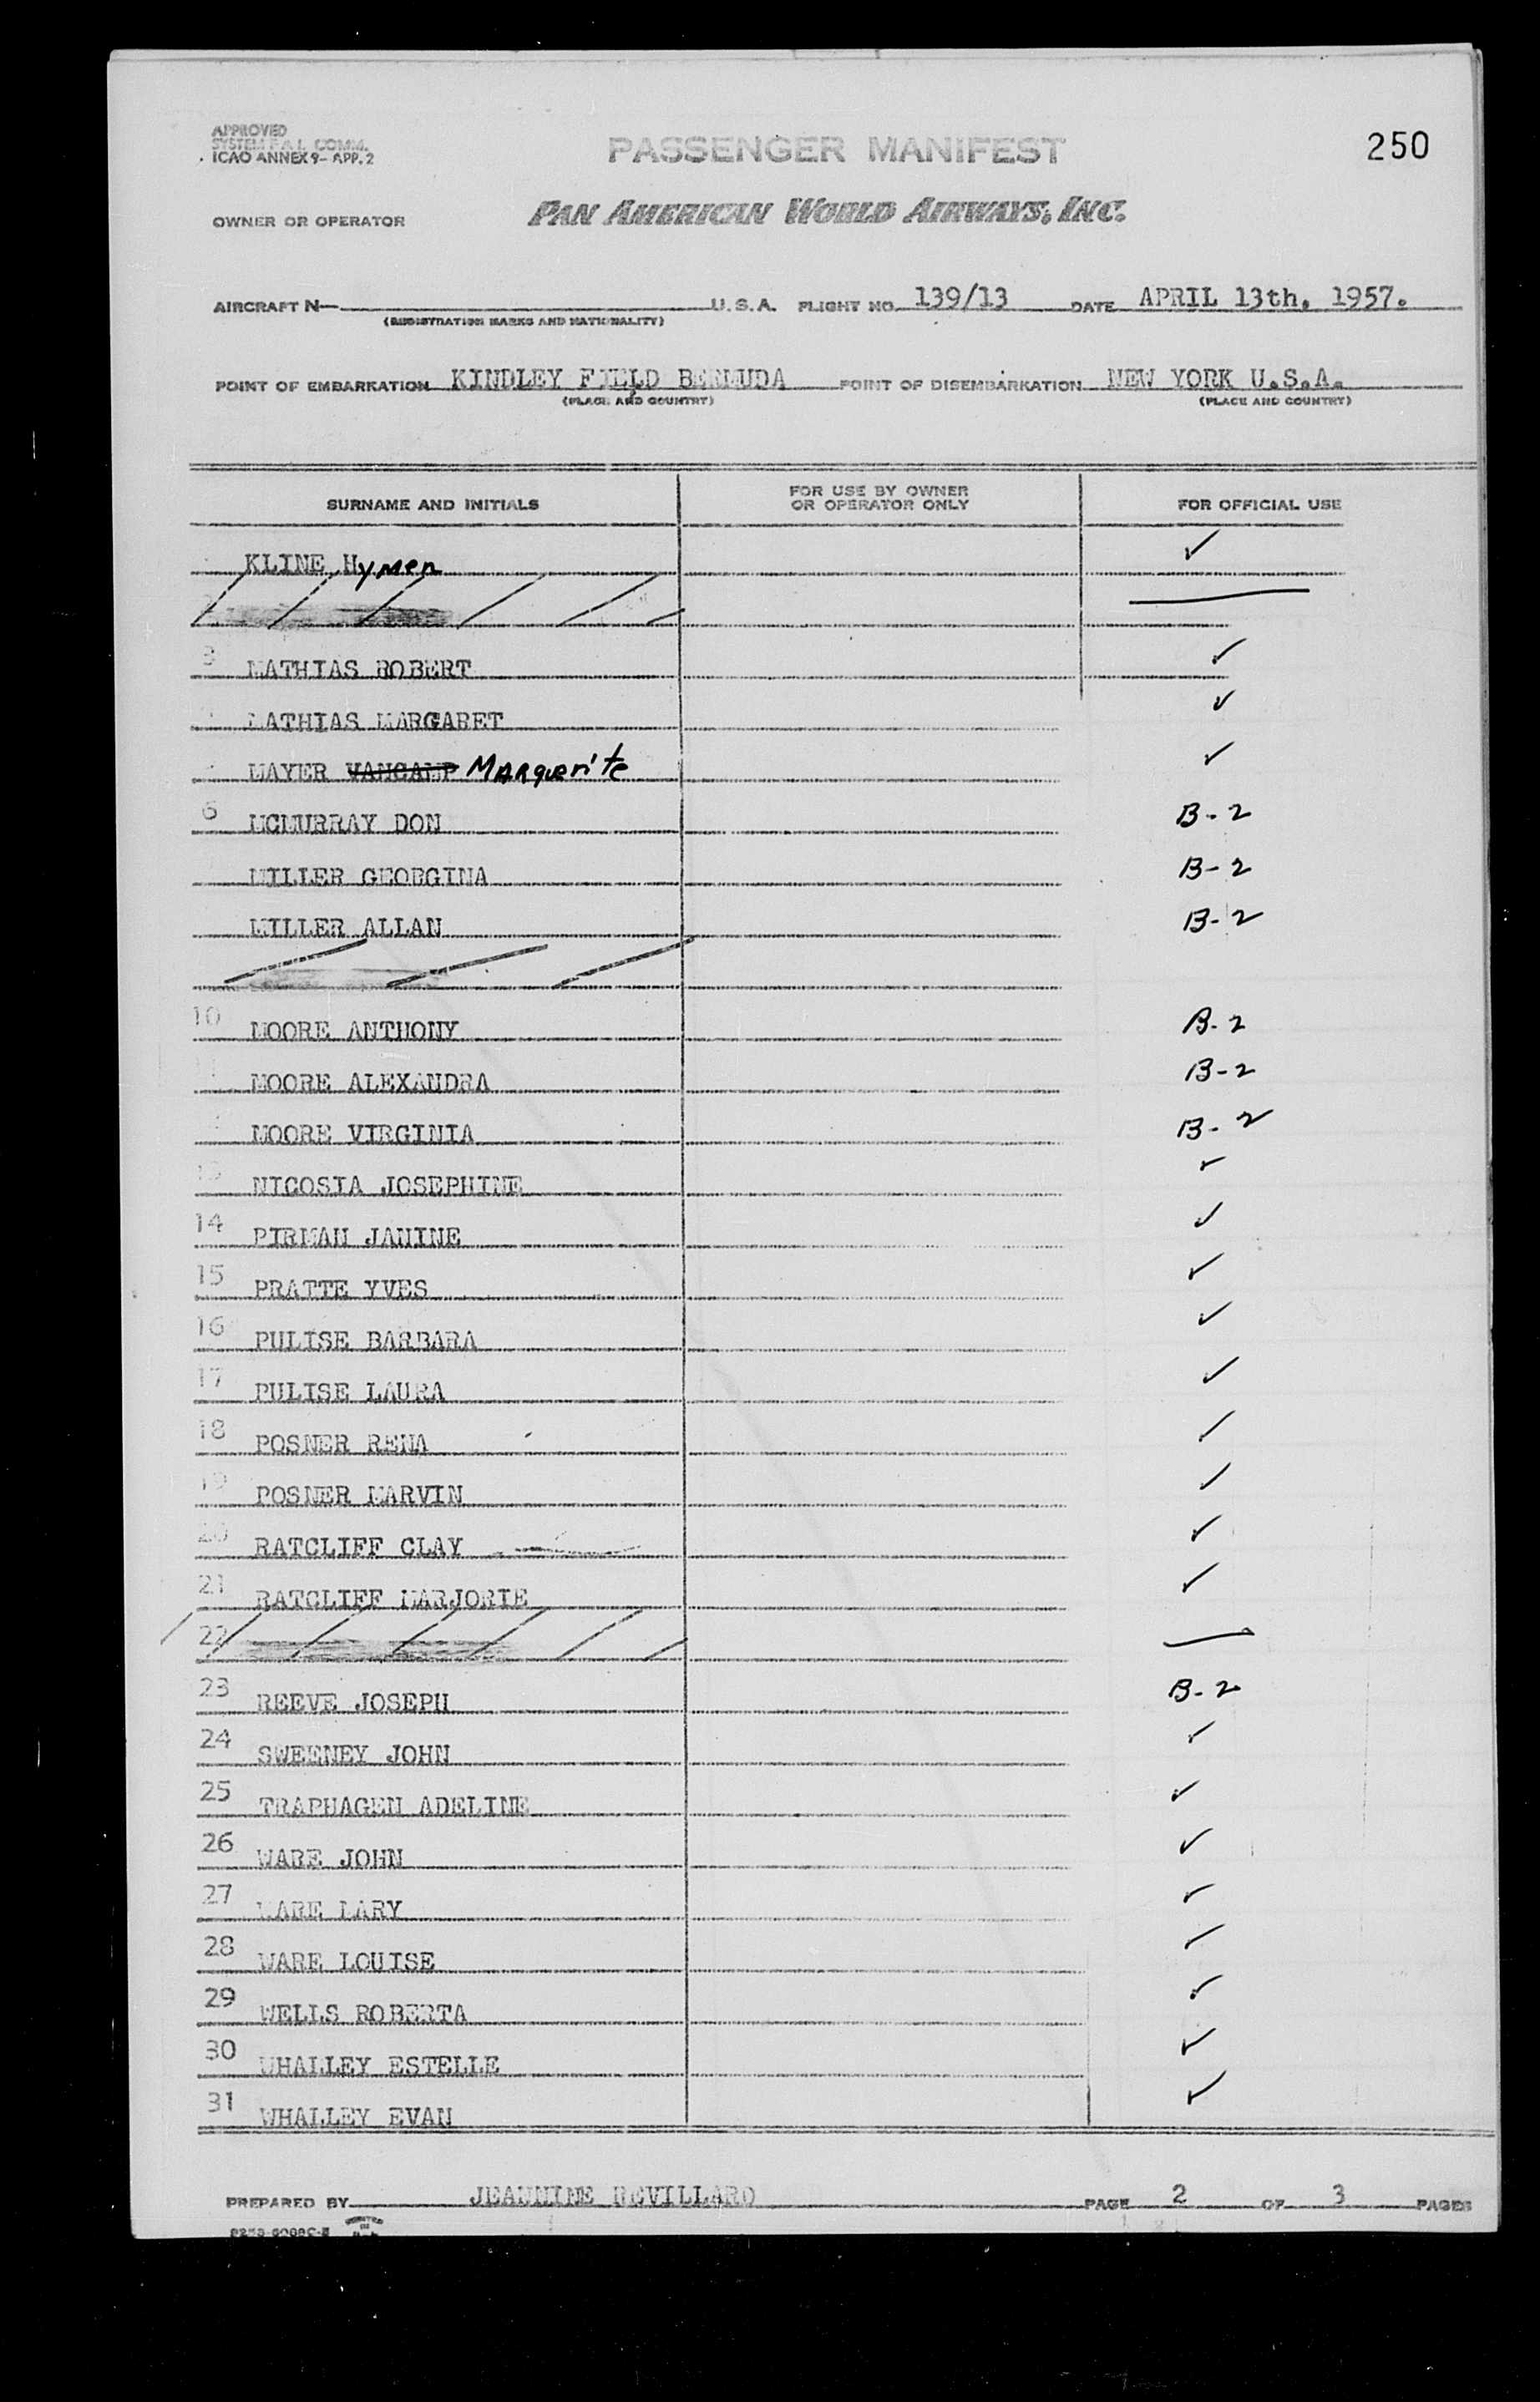 APPROVED
SYSTEM F.A.L. COMM.
ICAO ANNEX 9- APP. 2
PASSENGER MANIFEST
250
OWNER OR OPERATOR PAN AMERICAN WORLD AIRWAYS, INC.
AIRCRAFT N— U.S.A. FLIGHT NO. 139/13 DATE APRIL 13th, 1957.
(REGISTRATION MARKS AND NATIONALITY)
POINT OF EMBARKATION KINDLEY FIELD BERMUDA POINT OF DISEMBARKATION NEW YORK U.S.A.
(PLACE AND COUNTRY) (PLACE AND COUNTRY)
SURNAME AND INITIALS FOR USE BY OWNER OR OPERATOR ONLY FOR OFFICIAL USE
KLINE Hymen ✓
3 MATHIAS ROBERT ✓
MATHIAS MARGARET ✓
MAYER VANCAMP Marguerite ✓
6 MCMURRAY DON B-2
MILLER GEORGINA B-2
MILLER ALLAN B-2
10 MOORE ANTHONY B-2
MOORE ALEXANDRA B-2
MOORE VIRGINIA B-2
13 NICOSIA JOSEPHINE ✓
14 PIRMAN JANINE ✓
15 PRATTE YVES ✓
16 PULISE BARBARA ✓
17 PULISE LAURA ✓
18 POSNER RENA ✓
19 POSNER MARVIN ✓
20 RATCLIFF CLAY ✓
21 RATCLIFF MARJORIE ✓
22
23 REEVE JOSEPH B-2
24 SWEENEY JOHN ✓
25 TRAPHAGEN ADELINE ✓
26 WARE JOHN ✓
27 WARE MARY ✓
28 WARE LOUISE ✓
29 WELLS ROBERTA ✓
30 WHALLEY ESTELLE ✓
31 WHALLEY EVAN ✓
PREPARED BY JEANNINE REVILLARD PAGE 2 OF 3 PAGES